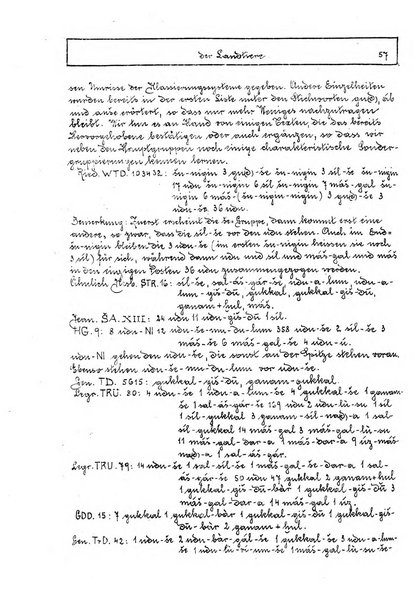 der Landtiere 57
sen Umrisse der Klassierungssysteme gegeben. Andere Einzelheiten
wurden bereits in der ersten Liste unter den Stichworten gud, áb
und anše erörtert, so dass nur mehr Weniges nachzutragen
bleibt. Wir tun es an Hand von einigen Texten, die das bereits
Hervorgehobene bestätigen oder auch ergänzen, so dass wir
neben den Hauptgruppen noch einige charakteristische Sonder-
gruppierungen kennen lernen.
Ried. WTD. 103432: šu-nigin 3 gud-še šu-nigin 3 sil-še šu-nigin
17 udu šu-nigin 6 sil šu-nigin 7 máš-gal šu-
nigin 6 máš-(šu-nigin-nigin) 3 gud-še 3
udu-še 36 udu.
Bemerkung: Zuerst erscheint die še-Gruppe, dann kommt erst eine
andere, so zwar, dass die sil-še vor den udu stehen. Auch im End-
šu-nigin bleiben die 3 udu-še (im ersten šu-nigin heissen sie noch
3 sil) für sich, während dann udu und sil und máš-gal und máš
in den einzigen Posten 36 udu zusammengezogen werden.
Ähnlich STR. 16: sil-še, sal-áš-gár-še, udu-a-lum, udu-a-
lum-giš-dū, gukkal, gukkal-giš-dū,
ganam+ḫul, máš.
Jean. ŠA. XIII: 24 udu 11 udu-giš-dū 1 sil.
HG. 9: 8 udu-NI 12 udu-še-mu-du-lum 358 udu-še 2 sil-še 3
máš-še 6 máš-gal-še 4 udu-ú.
udu-NI gehen den udu-še, die sonst an der Spitze stehen voran.
Ebenso stehen udu-še-mu-du-lum vor udu-še.
Gen. TD. 5615: gukkal-giš-dū, ganam-gukkal.
Legr. TRU. 80: 4 udu-še 1 udu-a-lum-še 4 gukkal-še 1 ganam-
še 1 sal-áš-gár-še 129 udu 2 udu-lù-su 1 sil
1 sil-gukkal 3 ganam-sil-nad-a 1 sal-
sil-gukkal 14 máš-gal 3 máš-gal-lù-su
11 máš-gal-dar-a 1 máš-dar-a 9 úz-máš-
nad-a 1 sal-áš-gár.
Legr. TRU. 79: 14 udu-še 1 sal-sil-še 1 máš-gal-še-dar-a 1 sal-
áš-gár-še 50 udu 47 gukkal 2 ganam+ḫul
1 gukkal-giš-dù-bàr 1 gukkal-giš-dū 3
máš-gal-dar-a 14 máš-gal 1 úz.
GDD. 15: 7 gukkal 1 gukkal-giš-dū 1 gukkal-giš-
dù-bàr 2 ganam+ḫul.
Gen. TrD. 42: 1 udu-še 2 udu-bàr-gal-še 3 udu-še 3 udu-a-lum-
še 1 udu-lù-ri-um-še 1 máš-gal-lù-su-še-